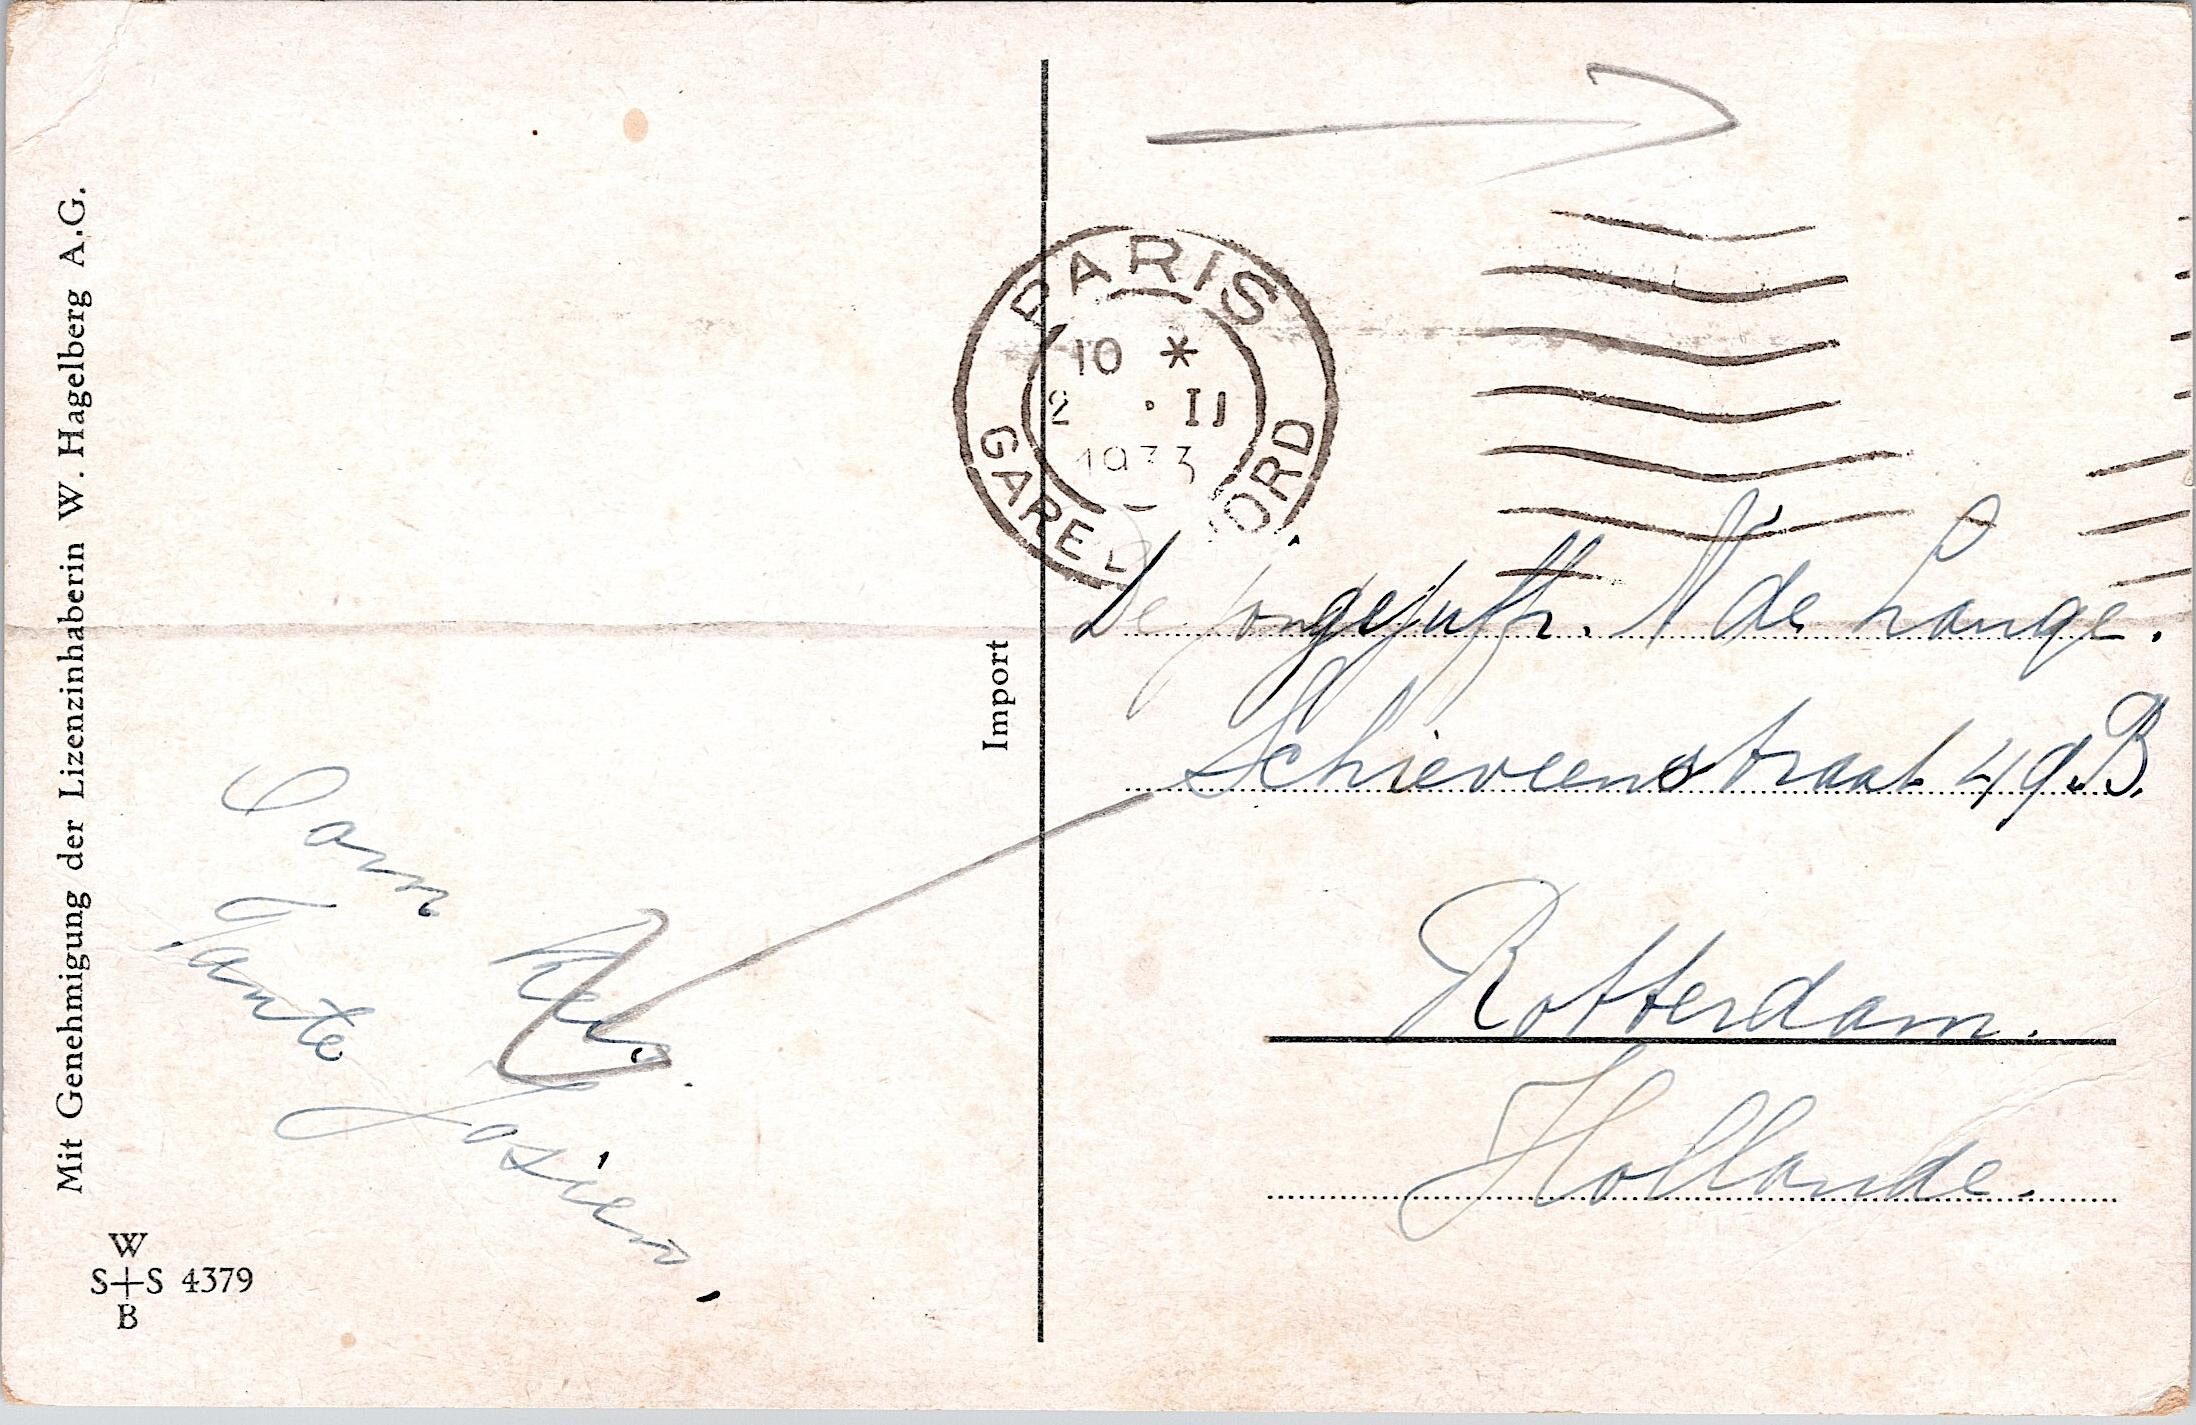 Mit Genehmigung der Lizenzinhaberin W. Hagelberg A.G.
W
S+S 4379
B
Import
PARIS
10 *
2 · II
1933
GARE D ORD
De Jongejuffr. N de Lange.
Schieveenstraat 49.B.
Rotterdam.
Hollande.
Oom
Tante Josien.